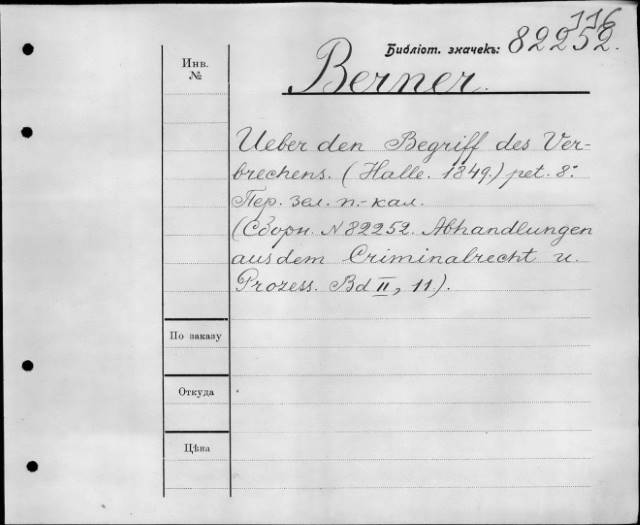 116
Библіот. значекъ: 82252.
Инв.
№
Berner.
Ueber den Begriff des Ver-
brechens. (Halle. 1849.) pet. 8:
Пер. зел. п.-кал.
(Сборн. N 82252. Abhandlungen
aus dem Criminalrecht u.
Prozess. Bd II, 11).
По заказу
Откуда
Цѣна